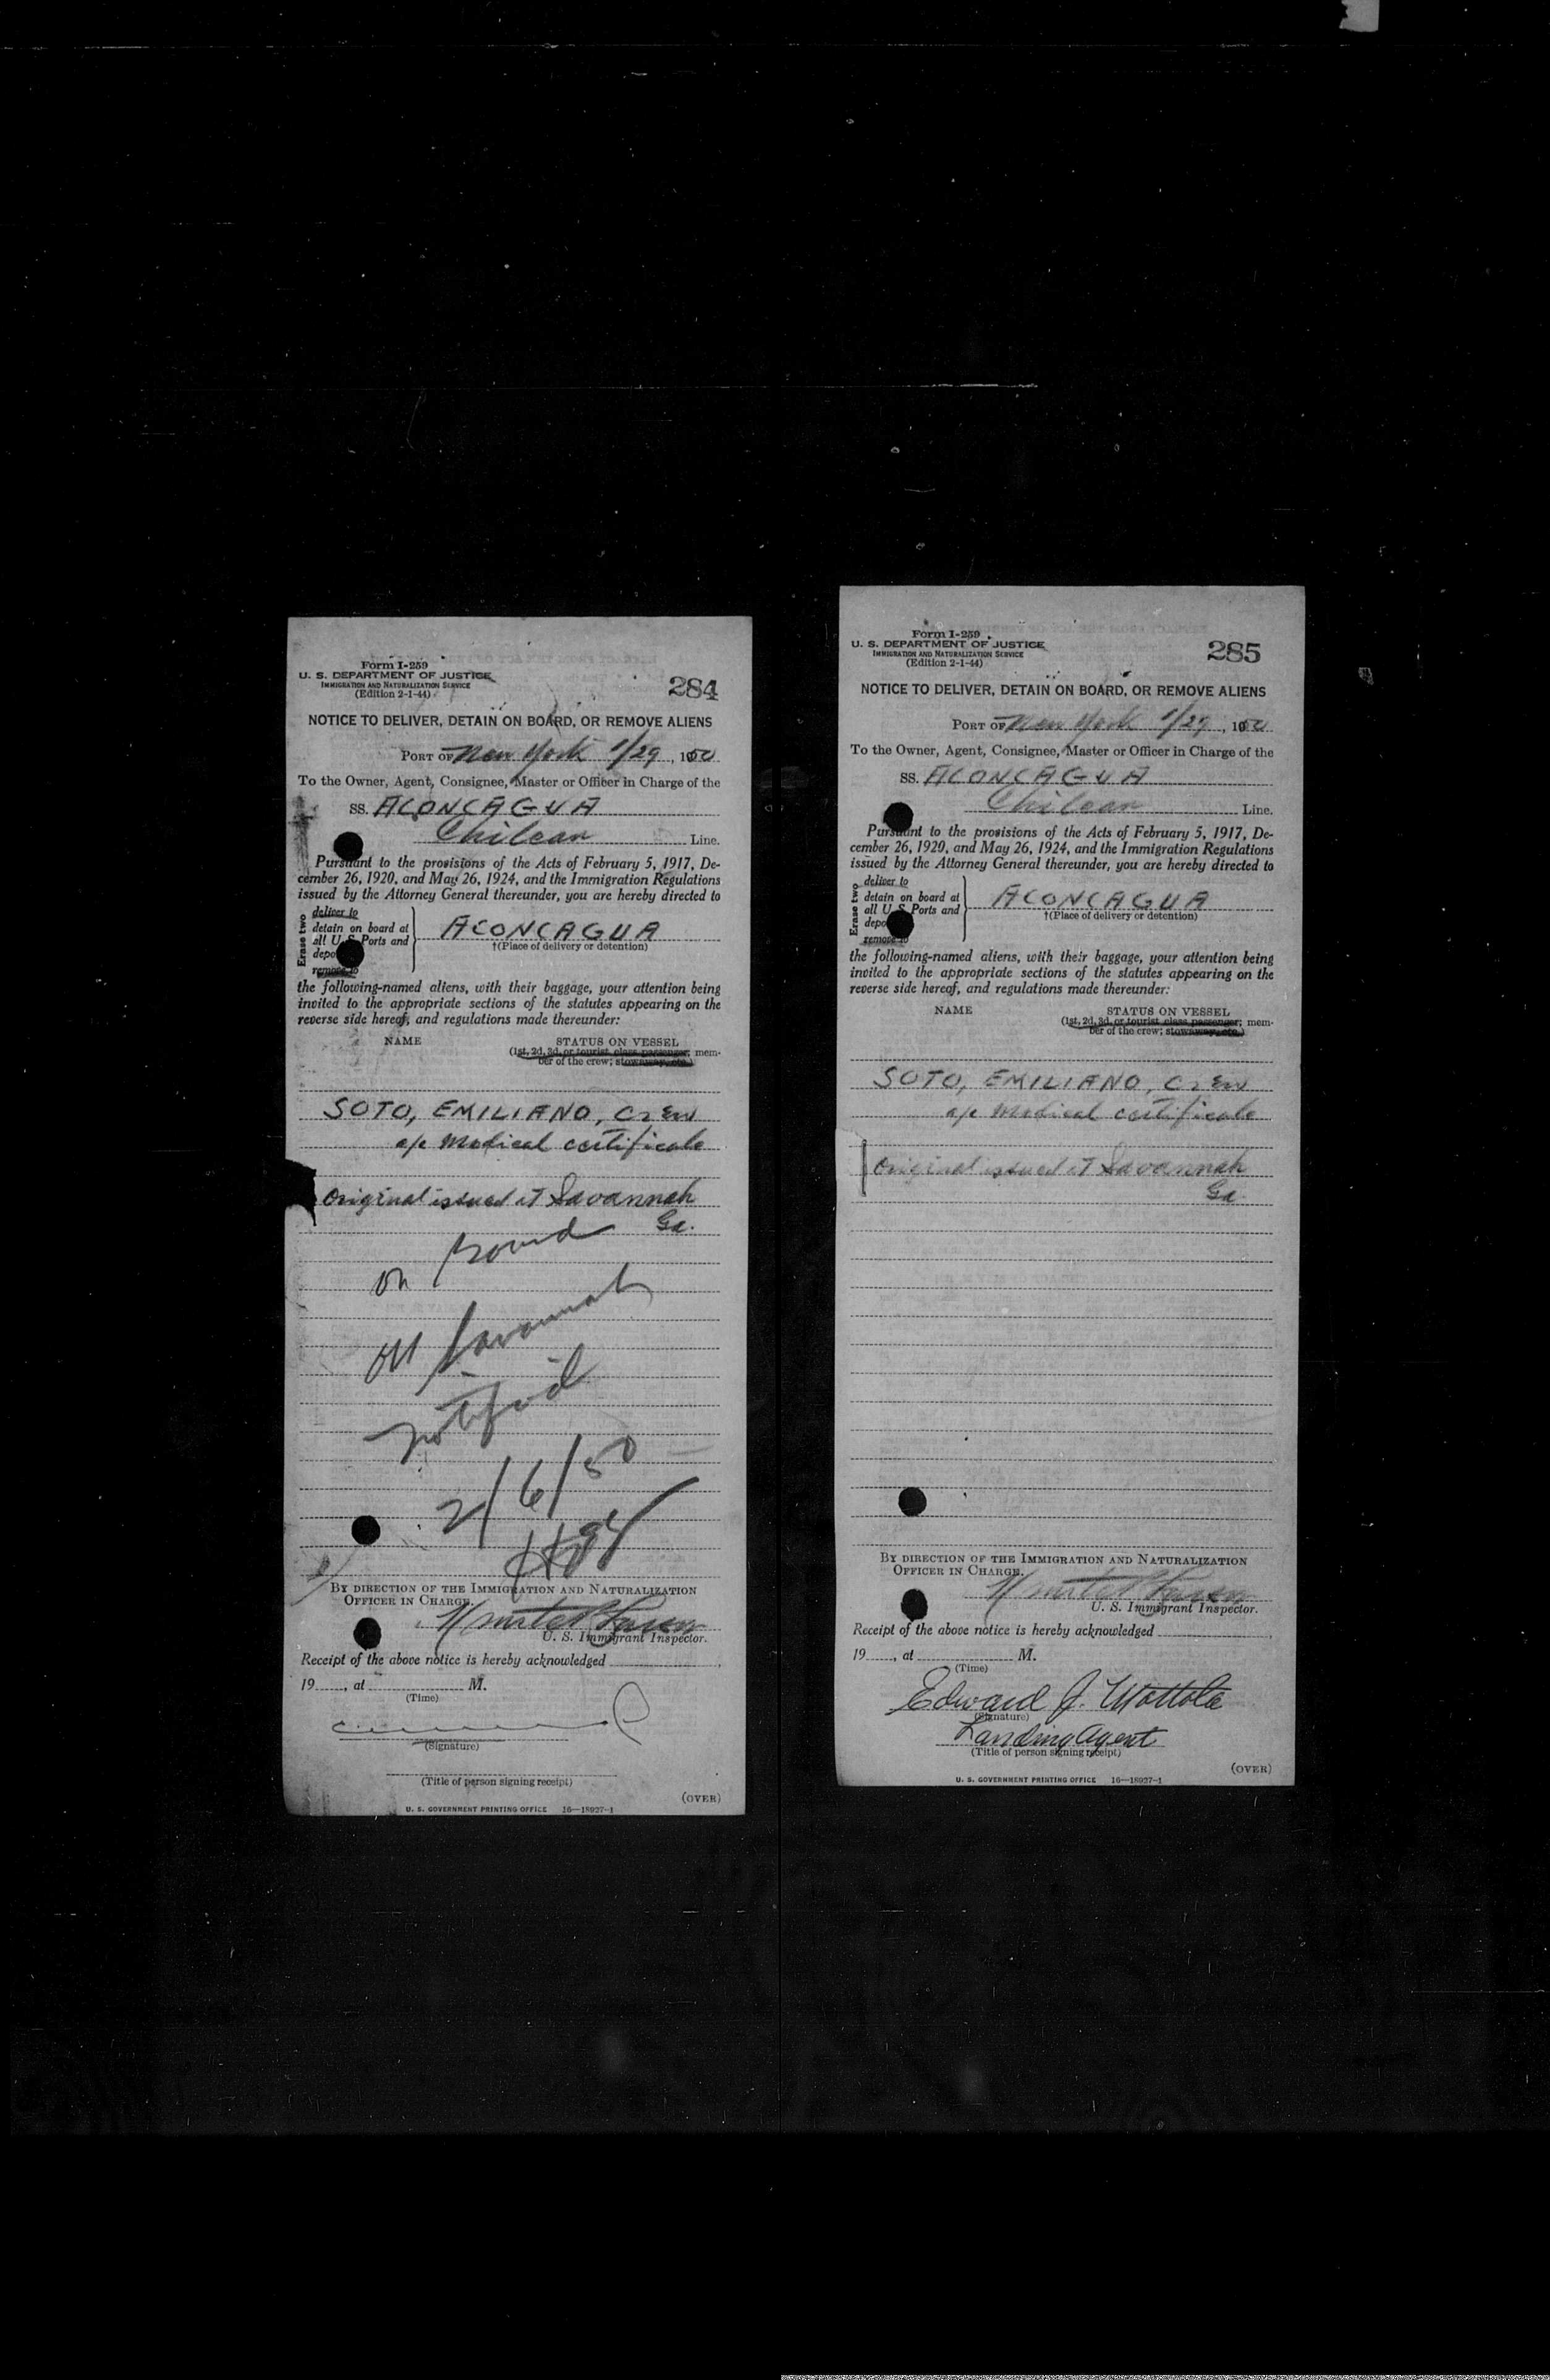 Form I-259
U. S. DEPARTMENT OF JUSTICE
IMMIGRATION AND NATURALIZATION SERVICE
(Edition 2-1-44)
284
NOTICE TO DELIVER, DETAIN ON BOARD, OR REMOVE ALIENS
PORT OF New York 1/29, 1950
To the Owner, Agent, Consignee, Master or Officer in Charge of the
SS. ACONCAGUA
Chilean Line.
Pursuant to the provisions of the Acts of February 5, 1917, De-
cember 26, 1920, and May 26, 1924, and the Immigration Regulations
issued by the Attorney General thereunder, you are hereby directed to
Erase two
deliver to
detain on board at
all U. S. Ports and
depo
remove to
ACONCAGUA
†(Place of delivery or detention)
the following-named aliens, with their baggage, your attention being
invited to the appropriate sections of the statutes appearing on the
reverse side hereof, and regulations made thereunder:
NAME STATUS ON VESSEL
(1st, 2d, 3d, or tourist class passenger; mem-
ber of the crew; stowaway, etc.)
SOTO, EMILIANO, Crew
a/c Medical certificate
Original issued at Savannah
Ga.
on board
Savannah
notified
2/6/50
BY DIRECTION OF THE IMMIGRATION AND NATURALIZATION
OFFICER IN CHARGE.
U. S. Immigrant Inspector.
Receipt of the above notice is hereby acknowledged
19, at M.
(Time)
(Signature)
(Title of person signing receipt)
(OVER)
U. S. GOVERNMENT PRINTING OFFICE 16—18927-1
Form I-259
U. S. DEPARTMENT OF JUSTICE
IMMIGRATION AND NATURALIZATION SERVICE
(Edition 2-1-44)
285
NOTICE TO DELIVER, DETAIN ON BOARD, OR REMOVE ALIENS
PORT OF New York 1/29, 1950
To the Owner, Agent, Consignee, Master or Officer in Charge of the
SS. ACONCAGUA
Chilean Line.
Pursuant to the provisions of the Acts of February 5, 1917, De-
cember 26, 1920, and May 26, 1924, and the Immigration Regulations
issued by the Attorney General thereunder, you are hereby directed to
Erase two
deliver to
detain on board at
all U. S. Ports and
depo
remove to
ACONCAGUA
†(Place of delivery or detention)
the following-named aliens, with their baggage, your attention being
invited to the appropriate sections of the statutes appearing on the
reverse side hereof, and regulations made thereunder:
NAME STATUS ON VESSEL
(1st, 2d, 3d, or tourist class passenger; mem-
ber of the crew; stowaway, etc.)
SOTO, EMILIANO, Crew
a/c Medical certificate
Original issued at Savannah
Ga
BY DIRECTION OF THE IMMIGRATION AND NATURALIZATION
OFFICER IN CHARGE.
U. S. Immigrant Inspector.
Receipt of the above notice is hereby acknowledged
19, at M.
(Time)
Edward J. Mottola
(Signature)
Landing Agent
(Title of person signing receipt)
(OVER)
U. S. GOVERNMENT PRINTING OFFICE 16—18927-1